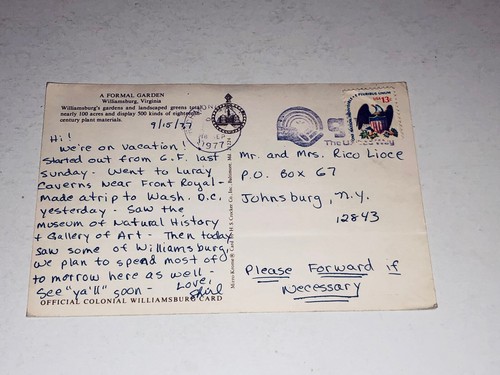 A FORMAL GARDEN
Williamsburg, Virginia
Williamsburg's gardens and landscaped greens total
nearly 100 acres and display 500 kinds of eighteenth-
century plant materials.
9/15/77
Hi!
We're on vacation!
Started out from G.F. last
Sunday. Went to Luray
Caverns near Front Royal -
made a trip to Wash. D.C.
yesterday. Saw the
museum of Natural History
+ Gallery of Art - Then today
saw some of Williamsburg.
We plan to spend most of
to morrow here as well -
See "ya'll" soon - Love,
OFFICIAL COLONIAL WILLIAMSBURG CARD
1977
The United Way
E PLURIBUS UNUM
USA
13c
Mr. and Mrs. Rico Lioce
P.O. Box 67
Johnsburg, N.Y.
12843
Please Forward if
Necessary